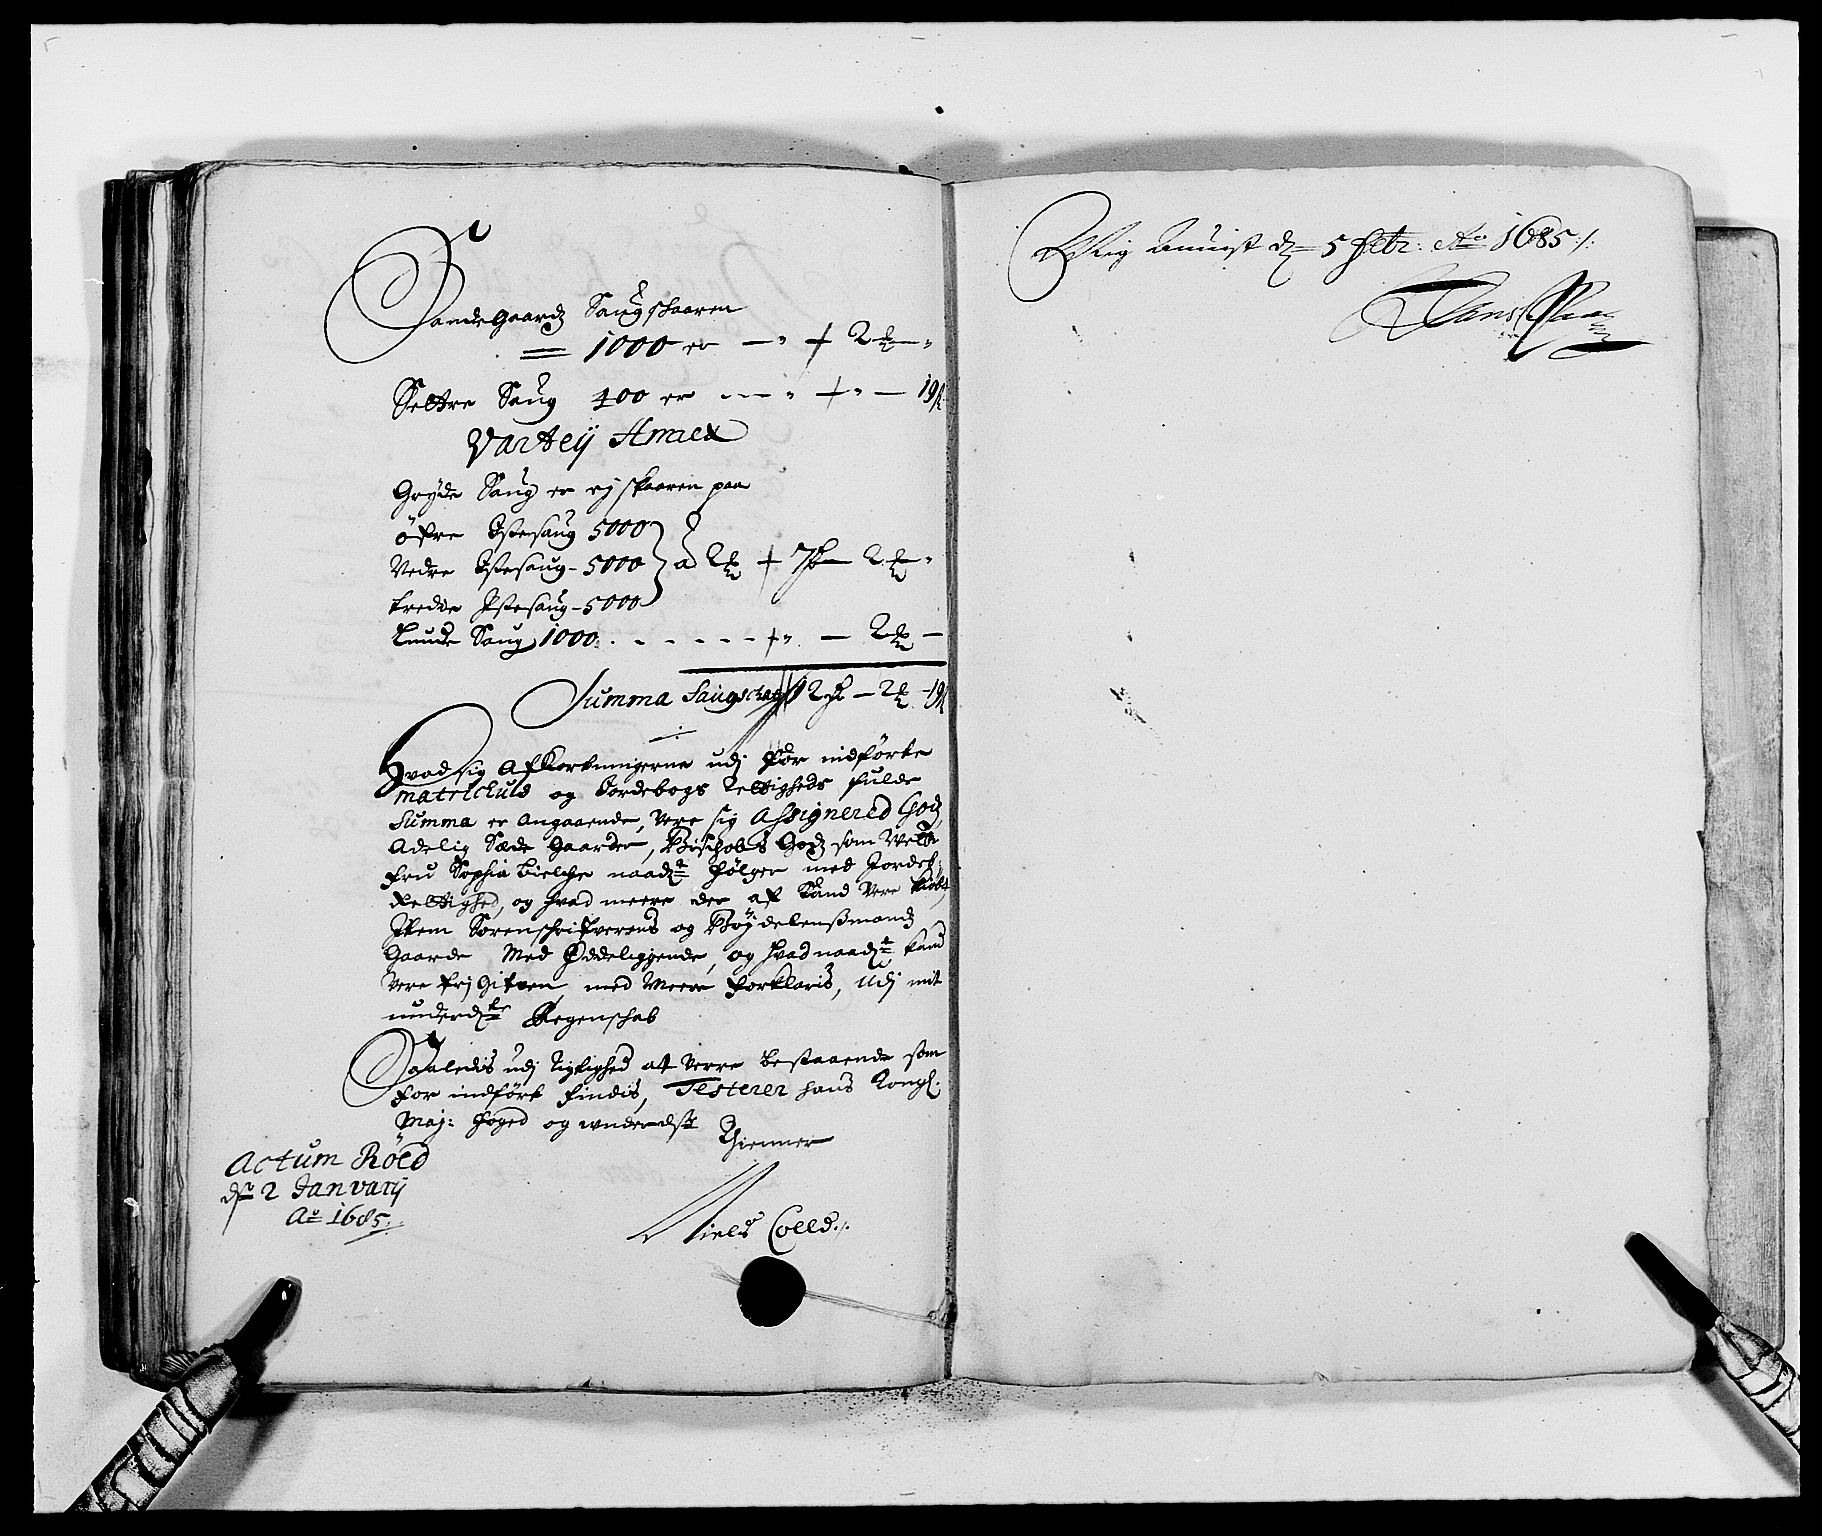 Sandegaards Saugskaaren
1000 er — " + 2 — "
Settre Saug 400 er — " + " — 19 ß
Varteij Amiet
Gryde Saug er ej skaaren paa
öfre Istesaug 5000
Nedre Istesaug - 5000 a 2 + 7 — 2 — "
tredie Istesaug - 5000
Lunde Saug 1000 . - - - - - + " . — 2 —
Summa Saugschatt 12 — 2 — 19 ß
Hvad sig Afkortningerne udj för indförte
matriculs og Jordebogs Rettigheds fulde
Summa er angaaende, Vere sig Assignered Gods,
Adelig Sæde Gaarder, Bischobs Gods som Velb:
Fru Sophia Bielche naad: fölger med Jordeb:
Rettighed, og hvad meere der af kand Vere kiöbt,
Item Sorenschrifverens og Böjdelensmands
Gaarde Med Öddeliggende, og hvad naad: kand
Vere frj Gifven, med Meere forklaris, Udj mit
underd:te Regenschab
Saaledis udj Rigtighed at Verre bestaaende som
for indfört findis, Testerer hans Kongl:
Maj: foged og underdste
Thienner
Actum Röed
dn 2 Janvarij
Ao 1685.
Niels Colld ./.
Mig leuerist d: 5 Febr: Ao 1685 ./.
Hans